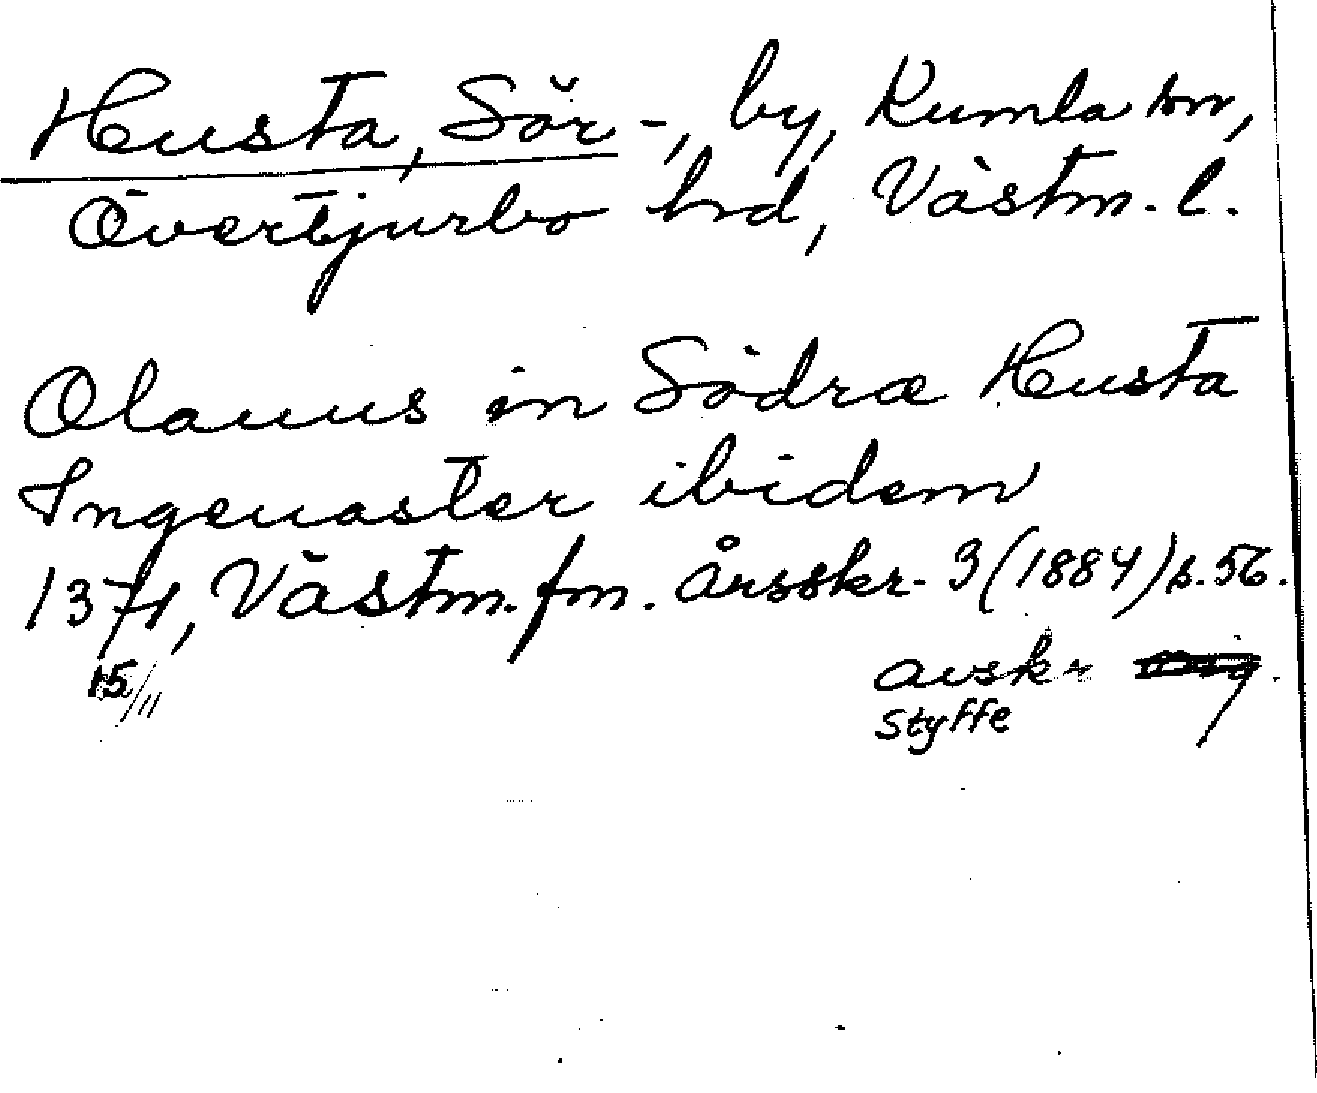 Husta, Sör-, by, Kumla sn,
Övertjurbo hd, Västm. l.
Olauus in Södræ Husta
Ingeuaster ibidem
1371, Västm. fm. årsskr. 3 (1884) s. 56.
15/11 avskr
Styffe